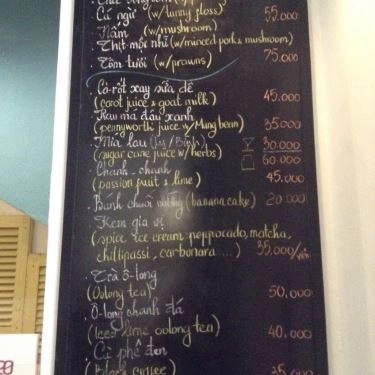 Cá ngừ (w/tunny floss) 55.000
Nấm (w/mushroom)
Thịt mộc nhĩ (w/minced pork & mushroom)
Tôm tươi (w/prawns) 75.000
Cà-rốt xay sữa dê
(carot juice & goat milk) 45.000
Rau má đậu xanh
(pennyworth juice w/Mung bean) 35.000
Mía lau (Ly/Bình) 30.000
(sugar cane juice w/herbs) 60.000
Chanh-chanh
(passion fruit & lime) 45.000
Bánh chuối nướng (banana cake) 20.000
Kem gia vị
(spice ice cream peppocado, matcha,
chillipassi, carbonara ...) 35,000/viên
Trà ô-long
(Oolong tea) 50,000
Ô-long chanh đá
(Iced lime oolong tea) 40,000
Cà phê đen
(Black coffee) 25.000